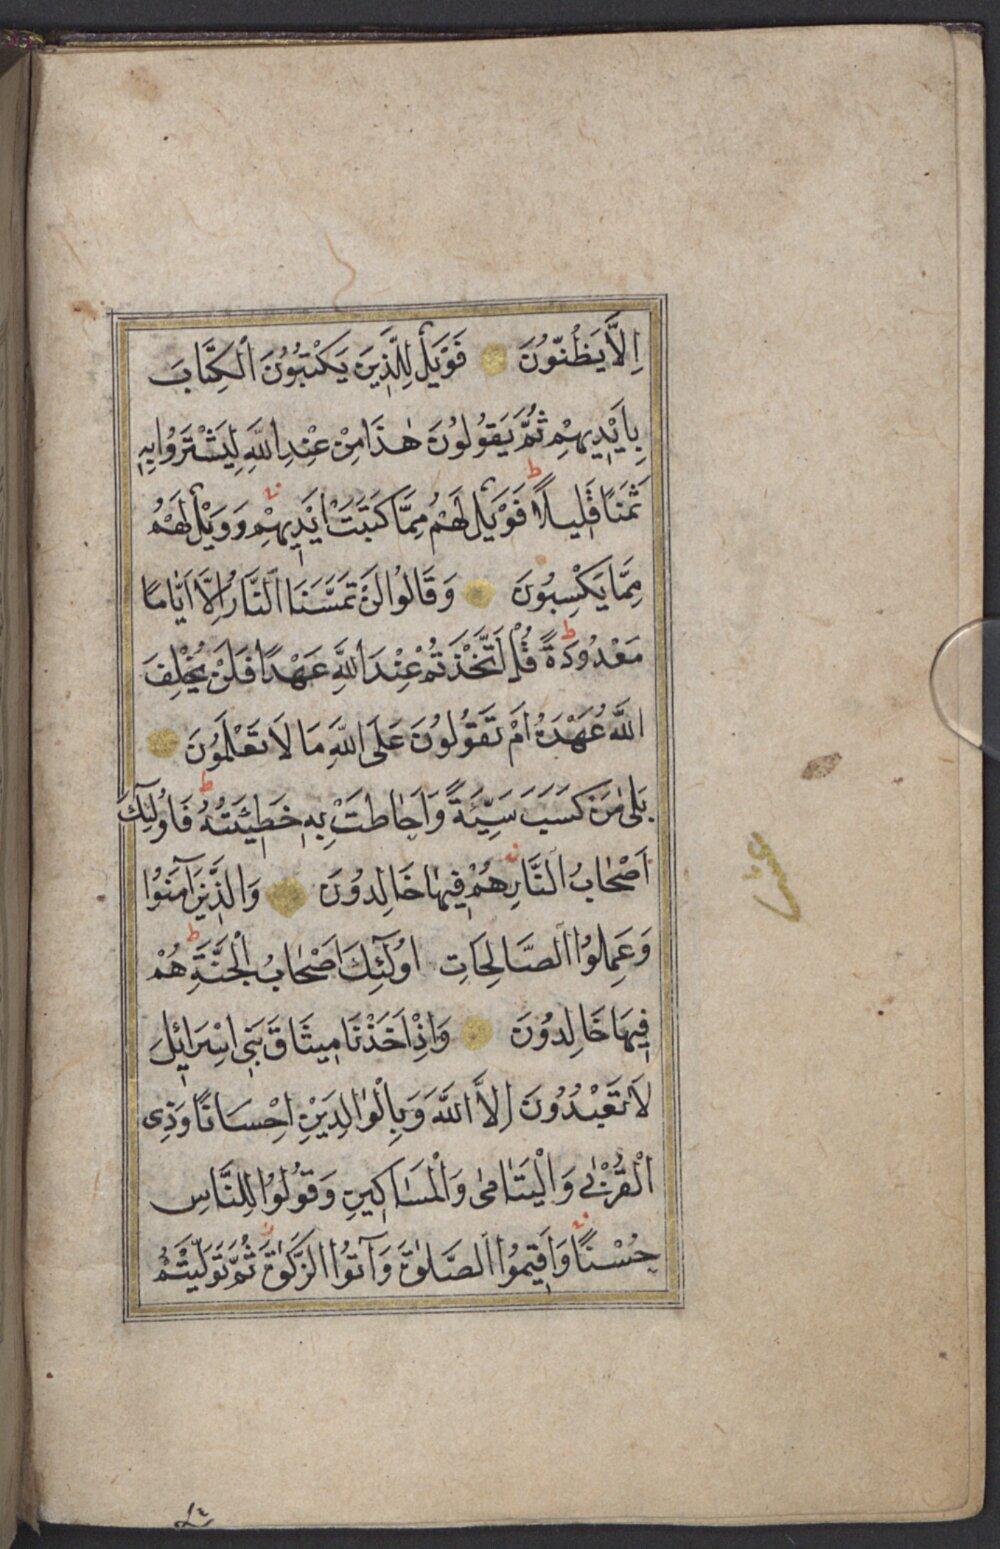 اِلَّا يَظُنُّونَ فَوَيْلٌ لِلَّذِينَ يَكْتُبُونَ الْكِتَابَ
بِاَيْدِيهِمْ ثُمَّ يَقُولُونَ هٰذَا مِنْ عِنْدِ اللّٰهِ لِيَشْتَرُوا بِهِ
ثَمَنًا قَلِيلًا ط فَوَيْلٌ لَهُمْ مِمَّا كَتَبَتْ اَيْدِيهِمْ وَوَيْلٌ لَهُمْ
مِمَّا يَكْسِبُونَ وَقَالُوا لَنْ تَمَسَّنَا النَّارُ اِلَّا اَيَّامًا
مَعْدُودَةً ط قُلْ اَتَّخَذْتُمْ عِنْدَ اللّٰهِ عَهْدًا فَلَنْ يُخْلِفَ
اللّٰهُ عَهْدَهُ اَمْ تَقُولُونَ عَلَى اللّٰهِ مَا لَا تَعْلَمُونَ
بَلٰى مَنْ كَسَبَ سَيِّئَةً وَاَحَاطَتْ بِهِ خَطِيئَتُهُ ط فَاُولٰئِكَ
اَصْحَابُ النَّارِ هُمْ فِيهَا خَالِدُونَ وَالَّذِينَ آمَنُوا
وَعَمِلُوا الصَّالِحَاتِ اُولٰئِكَ اَصْحَابُ الْجَنَّةِ ط هُمْ
فِيهَا خَالِدُونَ وَاِذْ اَخَذْنَا مِيثَاقَ بَنِي اِسْرَائِلَ
لَا تَعْبُدُونَ اِلَّا اللّٰهَ وَبِالْوَالِدَيْنِ اِحْسَانًا وَذِي
الْقُرْبٰى وَالْيَتَامٰى وَالْمَسَاكِينِ وَقُولُوا لِلنَّاسِ
حُسْنًا وَاَقِيمُوا الصَّلٰوةَ وَآتُوا الزَّكٰوةَ ثُمَّ تَوَلَّيْتُمْ
عشر